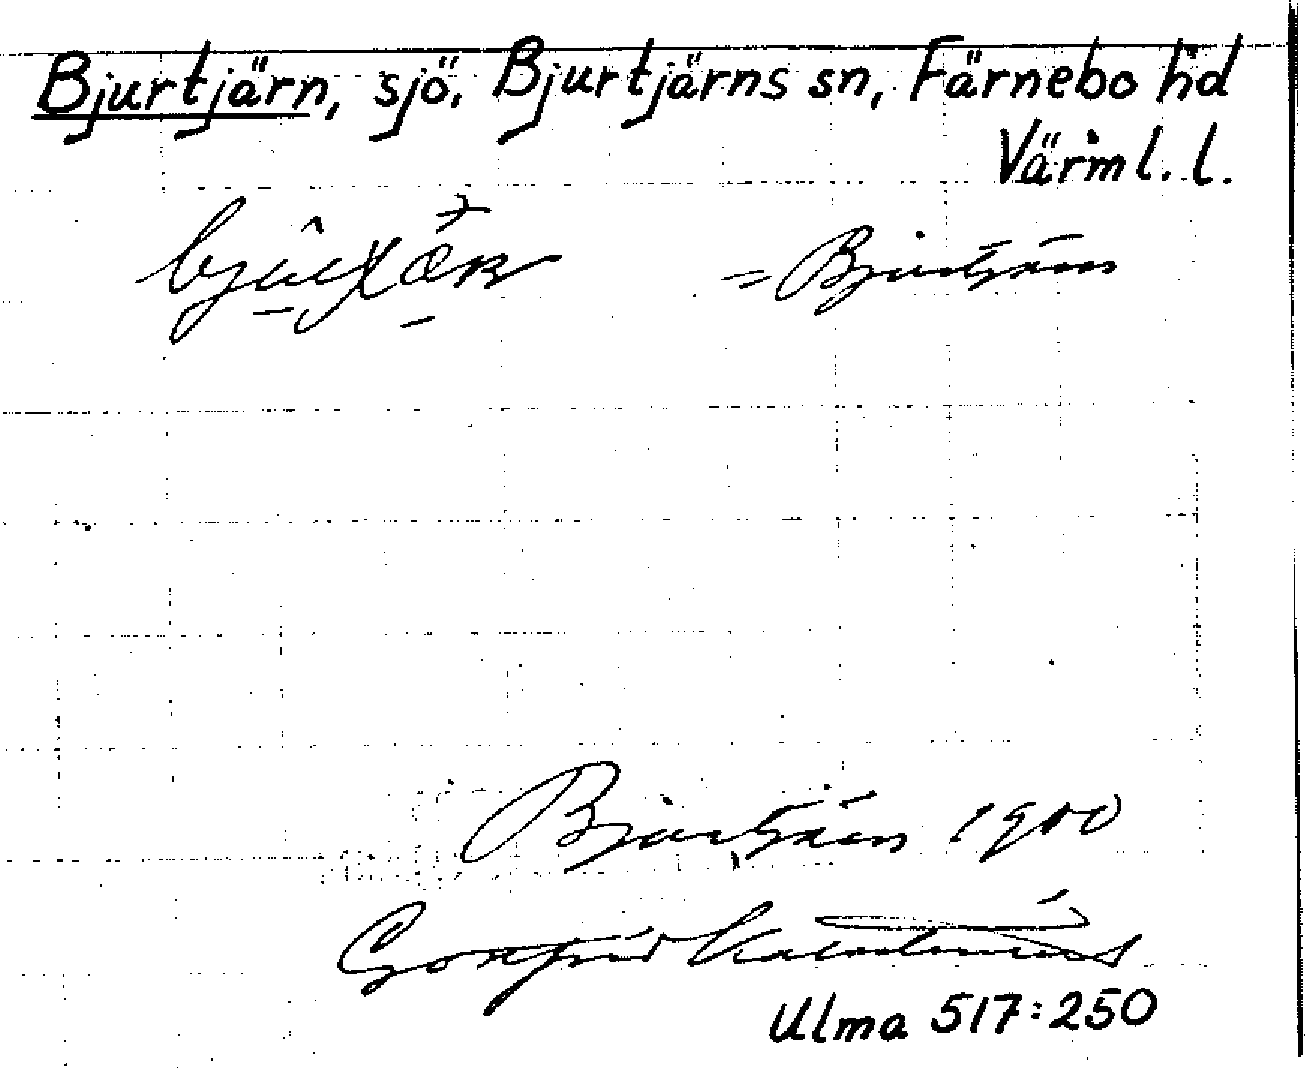 Bjurtjärn, sjö. Bjurtjärns sn, Färnebo hd
Värml. l.
= Bjurtjärn
Bjurtjärn 1900
Gottfrid Kallstenius
Ulma 517:250